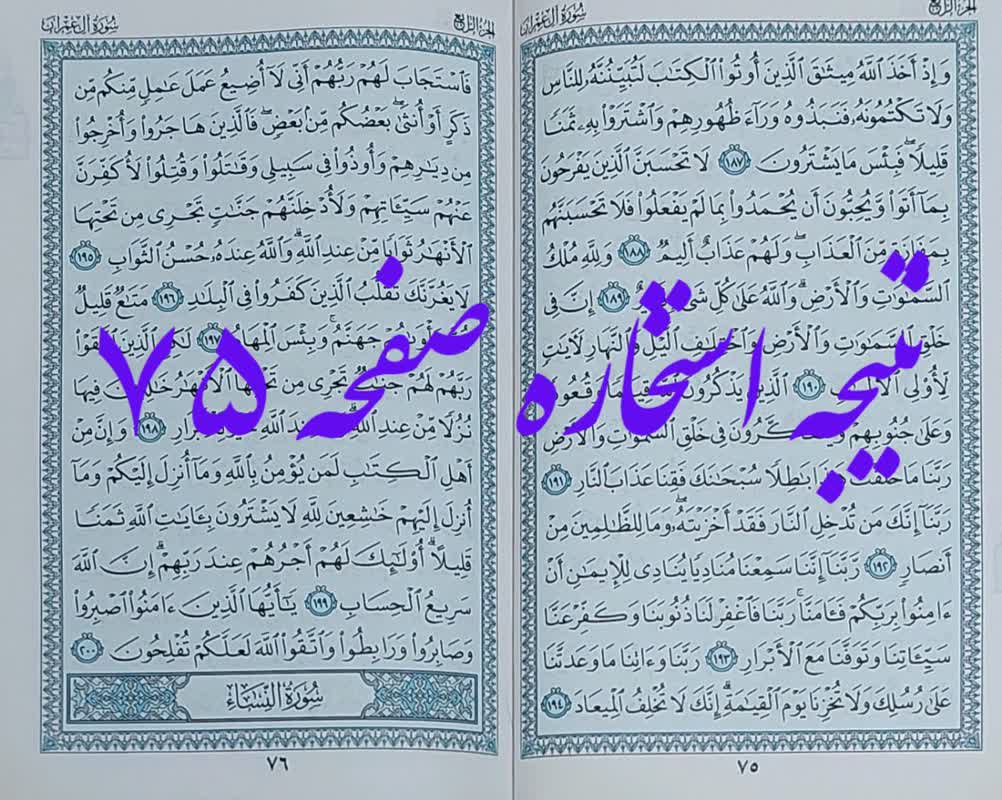 الجزء الرابع
سورة آل عمران
وَإِذْ أَخَذَ ٱللَّهُ مِيثَٰقَ ٱلَّذِينَ أُوتُوا۟ ٱلْكِتَٰبَ لَتُبَيِّنُنَّهُۥ لِلنَّاسِ
وَلَا تَكْتُمُونَهُۥ فَنَبَذُوهُ وَرَآءَ ظُهُورِهِمْ وَٱشْتَرَوْا۟ بِهِۦ ثَمَنًا
قَلِيلًا ۖ فَبِئْسَ مَا يَشْتَرُونَ ١٨٧ لَا تَحْسَبَنَّ ٱلَّذِينَ يَفْرَحُونَ
بِمَآ أَتَوا۟ وَّيُحِبُّونَ أَن يُحْمَدُوا۟ بِمَا لَمْ يَفْعَلُوا۟ فَلَا تَحْسَبَنَّهُم
بِمَفَازَةٍ مِّنَ ٱلْعَذَابِ ۖ وَلَهُمْ عَذَابٌ أَلِيمٌ ١٨٨ وَلِلَّهِ مُلْكُ
ٱلسَّمَٰوَٰتِ وَٱلْأَرْضِ ۗ وَٱللَّهُ عَلَىٰ كُلِّ شَىْءٍ ١٨٩ إِنَّ فِى
خَلْقِ ٱلسَّمَٰوَٰتِ وَٱلْأَرْضِ وَٱخْتِلَٰفِ ٱلَّيْلِ وَٱلنَّهَارِ لَءَايَٰتٍ
لِّأُو۟لِى ٱلْأَلْبَٰبِ ١٩٠ ٱلَّذِينَ يَذْكُرُونَ قِيَٰمًا وَقُعُودًا
وَعَلَىٰ جُنُوبِهِمْ وَيَتَفَكَّرُونَ فِى خَلْقِ ٱلسَّمَٰوَٰتِ وَٱلْأَرْضِ
رَبَّنَا مَا خَلَقْتَ هَٰذَا بَٰطِلًا سُبْحَٰنَكَ فَقِنَا عَذَابَ ٱلنَّارِ ١٩١
رَبَّنَآ إِنَّكَ مَن تُدْخِلِ ٱلنَّارَ فَقَدْ أَخْزَيْتَهُۥ ۖ وَمَا لِلظَّٰلِمِينَ مِنْ
أَنصَارٍ ١٩٢ رَّبَّنَآ إِنَّنَا سَمِعْنَا مُنَادِيًا يُنَادِى لِلْإِيمَٰنِ أَنْ
ءَامِنُوا۟ بِرَبِّكُمْ فَـَٔامَنَّا ۚ رَبَّنَا فَٱغْفِرْ لَنَا ذُنُوبَنَا وَكَفِّرْ عَنَّا
سَيِّـَٔاتِنَا وَتَوَفَّنَا مَعَ ٱلْأَبْرَارِ ١٩٣ رَبَّنَا وَءَاتِنَا مَا وَعَدتَّنَا
عَلَىٰ رُسُلِكَ وَلَا تُخْزِنَا يَوْمَ ٱلْقِيَٰمَةِ ۗ إِنَّكَ لَا تُخْلِفُ ٱلْمِيعَادَ ١٩٤
٧٥
الجزء الرابع
سورة آل عمران
فَٱسْتَجَابَ لَهُمْ رَبُّهُمْ أَنِّى لَآ أُضِيعُ عَمَلَ عَٰمِلٍ مِّنكُم مِّن
ذَكَرٍ أَوْ أُنثَىٰ ۖ بَعْضُكُم مِّنۢ بَعْضٍ ۖ فَٱلَّذِينَ هَاجَرُوا۟ وَأُخْرِجُوا۟
مِن دِيَٰرِهِمْ وَأُوذُوا۟ فِى سَبِيلِى وَقَٰتَلُوا۟ وَقُتِلُوا۟ لَأُكَفِّرَنَّ
عَنْهُمْ سَيِّـَٔاتِهِمْ وَلَأُدْخِلَنَّهُمْ جَنَّٰتٍ تَجْرِى مِن تَحْتِهَا
ٱلْأَنْهَٰرُ ثَوَابًا مِّنْ عِندِ ٱللَّهِ ۗ وَٱللَّهُ عِندَهُۥ حُسْنُ ٱلثَّوَابِ ١٩٥
لَا يَغُرَّنَّكَ تَقَلُّبُ ٱلَّذِينَ كَفَرُوا۟ فِى ٱلْبِلَٰدِ ١٩٦ مَتَٰعٌ قَلِيلٌ
ثُمَّ مَأْوَىٰهُمْ جَهَنَّمُ ۚ وَبِئْسَ ٱلْمِهَادُ ١٩٧ لَٰكِنِ ٱلَّذِينَ ٱتَّقَوْا۟
رَبَّهُمْ لَهُمْ جَنَّٰتٌ تَجْرِى مِن تَحْتِهَا ٱلْأَنْهَٰرُ خَٰلِدِينَ فِيهَا
نُزُلًا مِّنْ عِندِ ٱللَّهِ ۗ وَمَا عِندَ ٱللَّهِ خَيْرٌ لِّلْأَبْرَارِ ١٩٨ وَإِنَّ مِنْ
أَهْلِ ٱلْكِتَٰبِ لَمَن يُؤْمِنُ بِٱللَّهِ وَمَآ أُنزِلَ إِلَيْكُمْ وَمَآ
أُنزِلَ إِلَيْهِمْ خَٰشِعِينَ لِلَّهِ لَا يَشْتَرُونَ بِـَٔايَٰتِ ٱللَّهِ ثَمَنًا
قَلِيلًا ۗ أُو۟لَٰٓئِكَ لَهُمْ أَجْرُهُمْ عِندَ رَبِّهِمْ ۗ إِنَّ ٱللَّهَ
سَرِيعُ ٱلْحِسَابِ ١٩٩ يَٰٓأَيُّهَا ٱلَّذِينَ ءَامَنُوا۟ ٱصْبِرُوا۟
وَصَابِرُوا۟ وَرَابِطُوا۟ وَٱتَّقُوا۟ ٱللَّهَ لَعَلَّكُمْ تُفْلِحُونَ ٢٠٠
سُورَةُ النِّسَاءِ
٧٦
نتیجه استخاره صفحه ۷۵